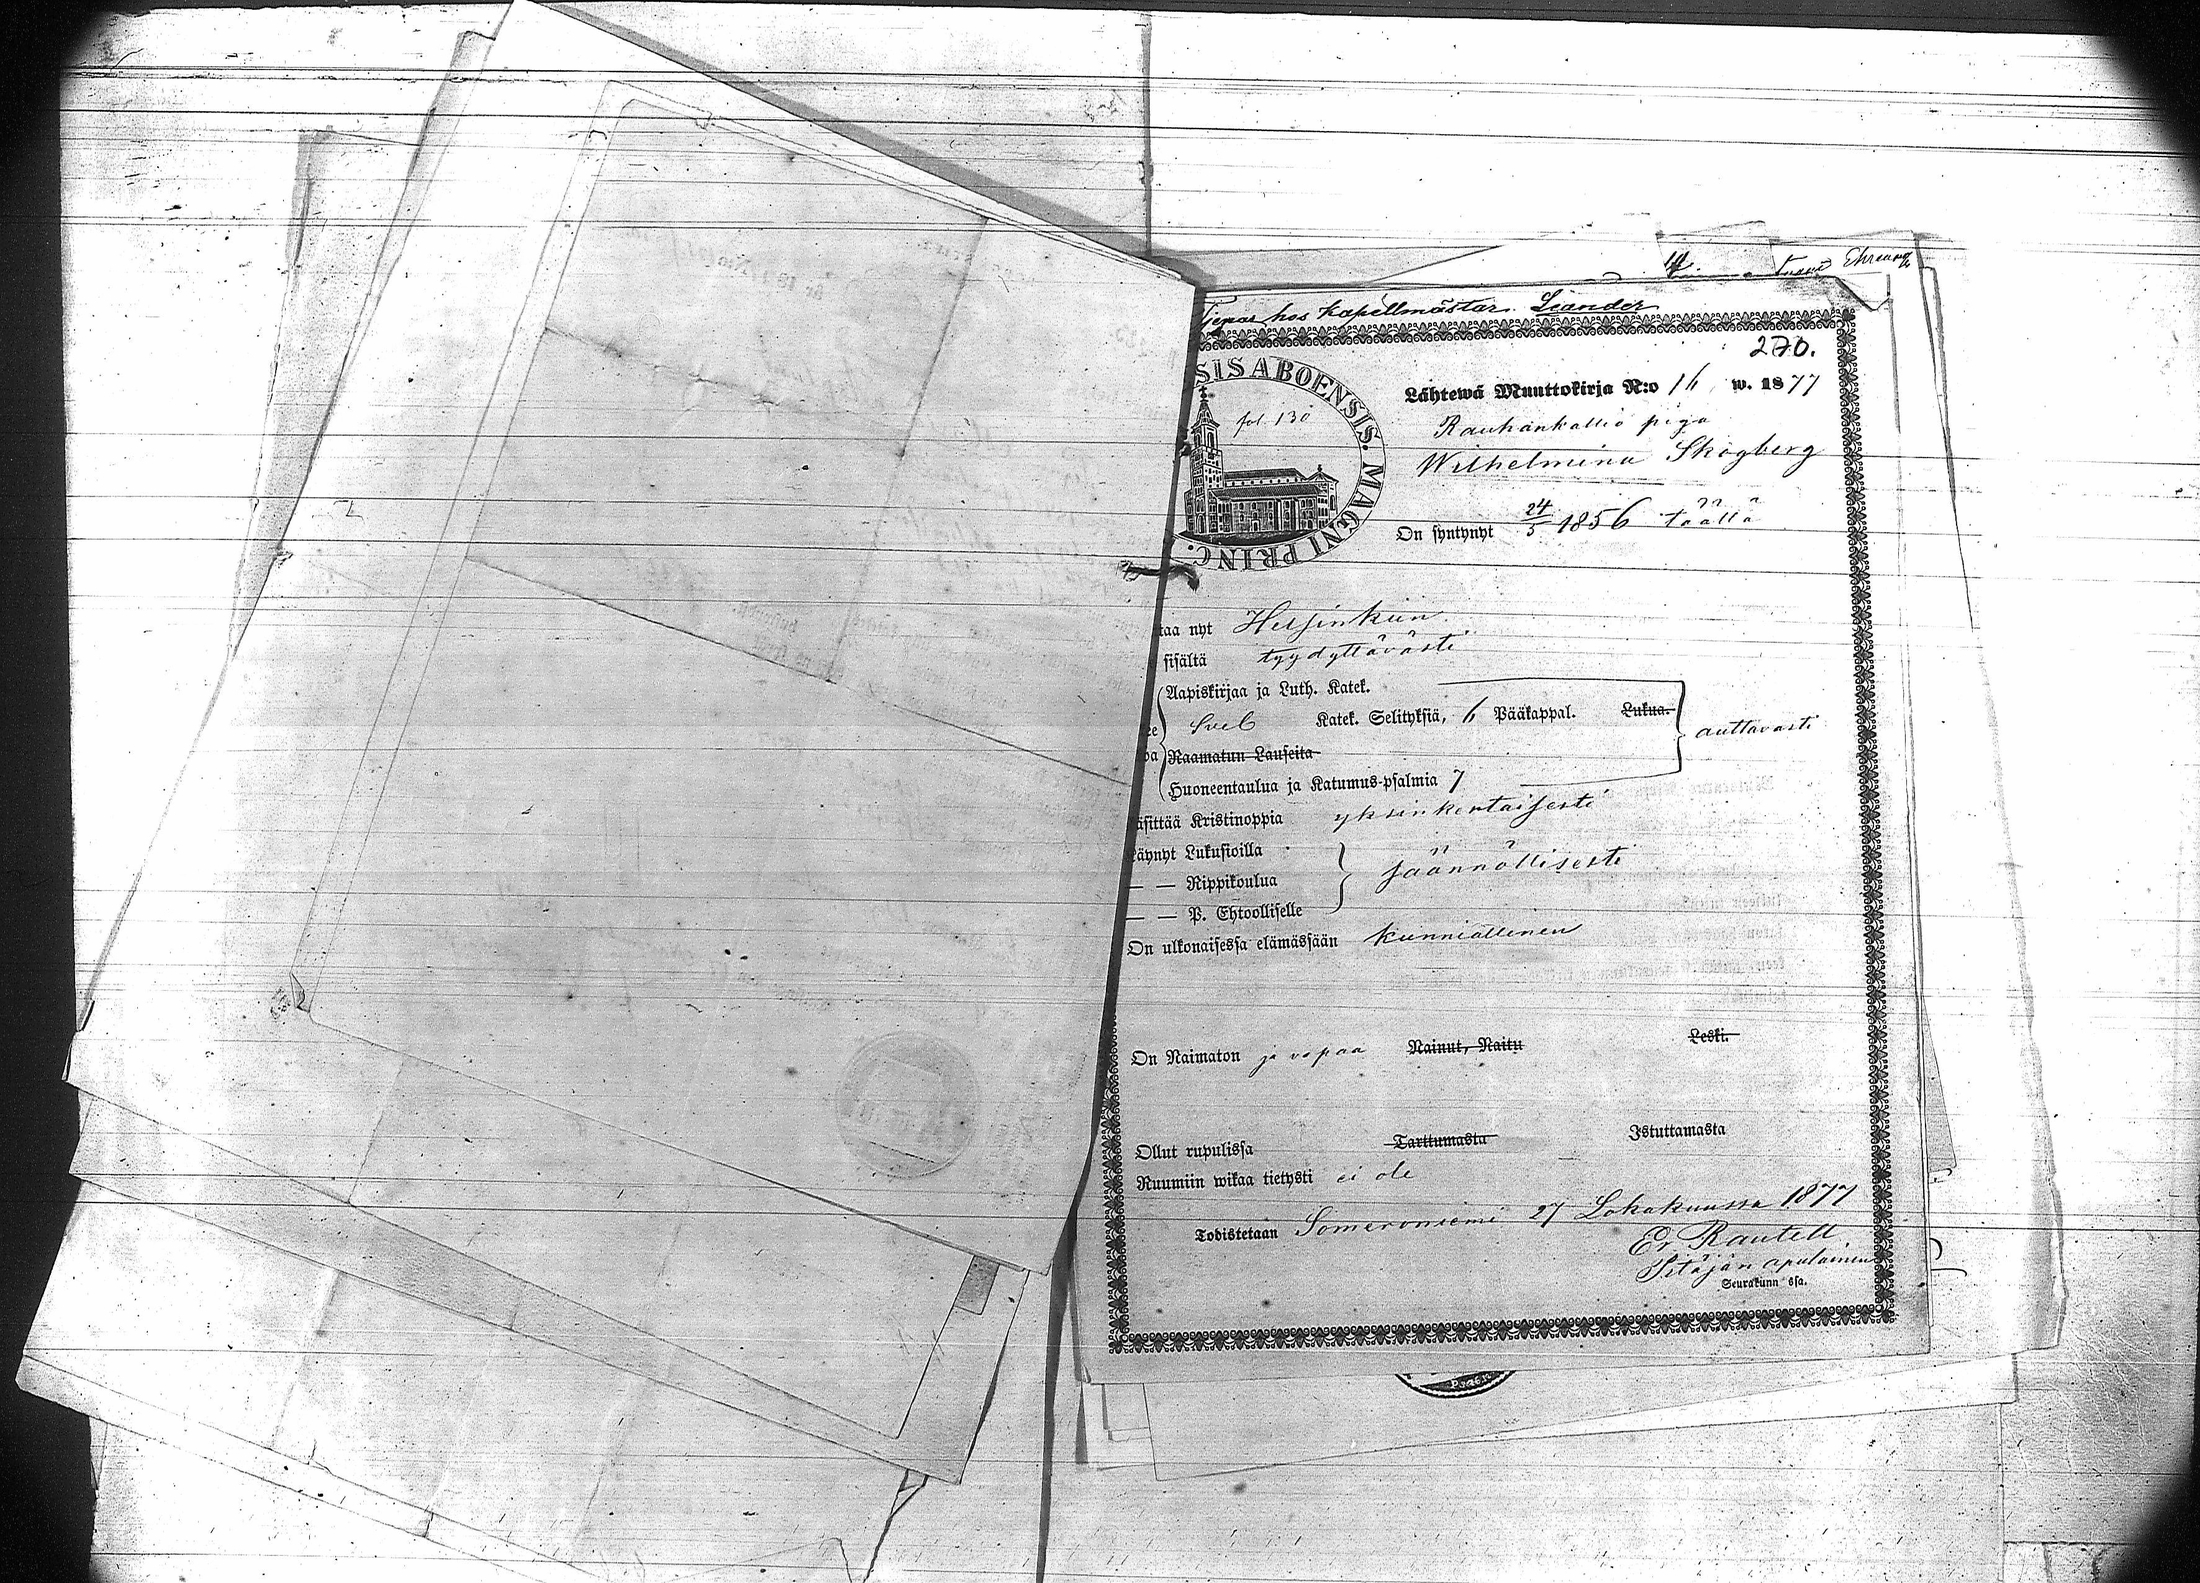 Tjenar hos kapellmästar. Leander
270.
SIS ABOENSIS. MAGNI PRINC.
fol. 130
Lähtewä Muuttokirja N:o 16 w. 1877
Rauhankallio piga
Wilhelmina Skogberg
On syntynyt 24/5 1856 täällä
taa nyt Helsinkiin
sisältä tyydyttävästi
Aapiskirjaa ja Luth. Katek.
Sveb Katek. Selityksiä, 6 Pääkappal. Lukua.
auttavasti
Raamatun Lauseita
Huoneentaulua ja Katumus-psalmia 7
äsittää Kristinoppia yksinkertaisesti
äynyt Lukusioilla
— — Rippikoulua säännöllisesti
— — P. Ehtoolliselle
On ulkonaisessa elämässään kunniallinen
On Naimaton ja vapaa Nainut, Naitu Leski.
Ollut rupulissa Tarttumasta Istuttamasta
Ruumiin wikaa tietysti ei ole
Todistetaan Someroniemi 27 Lokakuussa 1877
Er Rautell
Sitäjän apulainen
Seurakunn ssa.